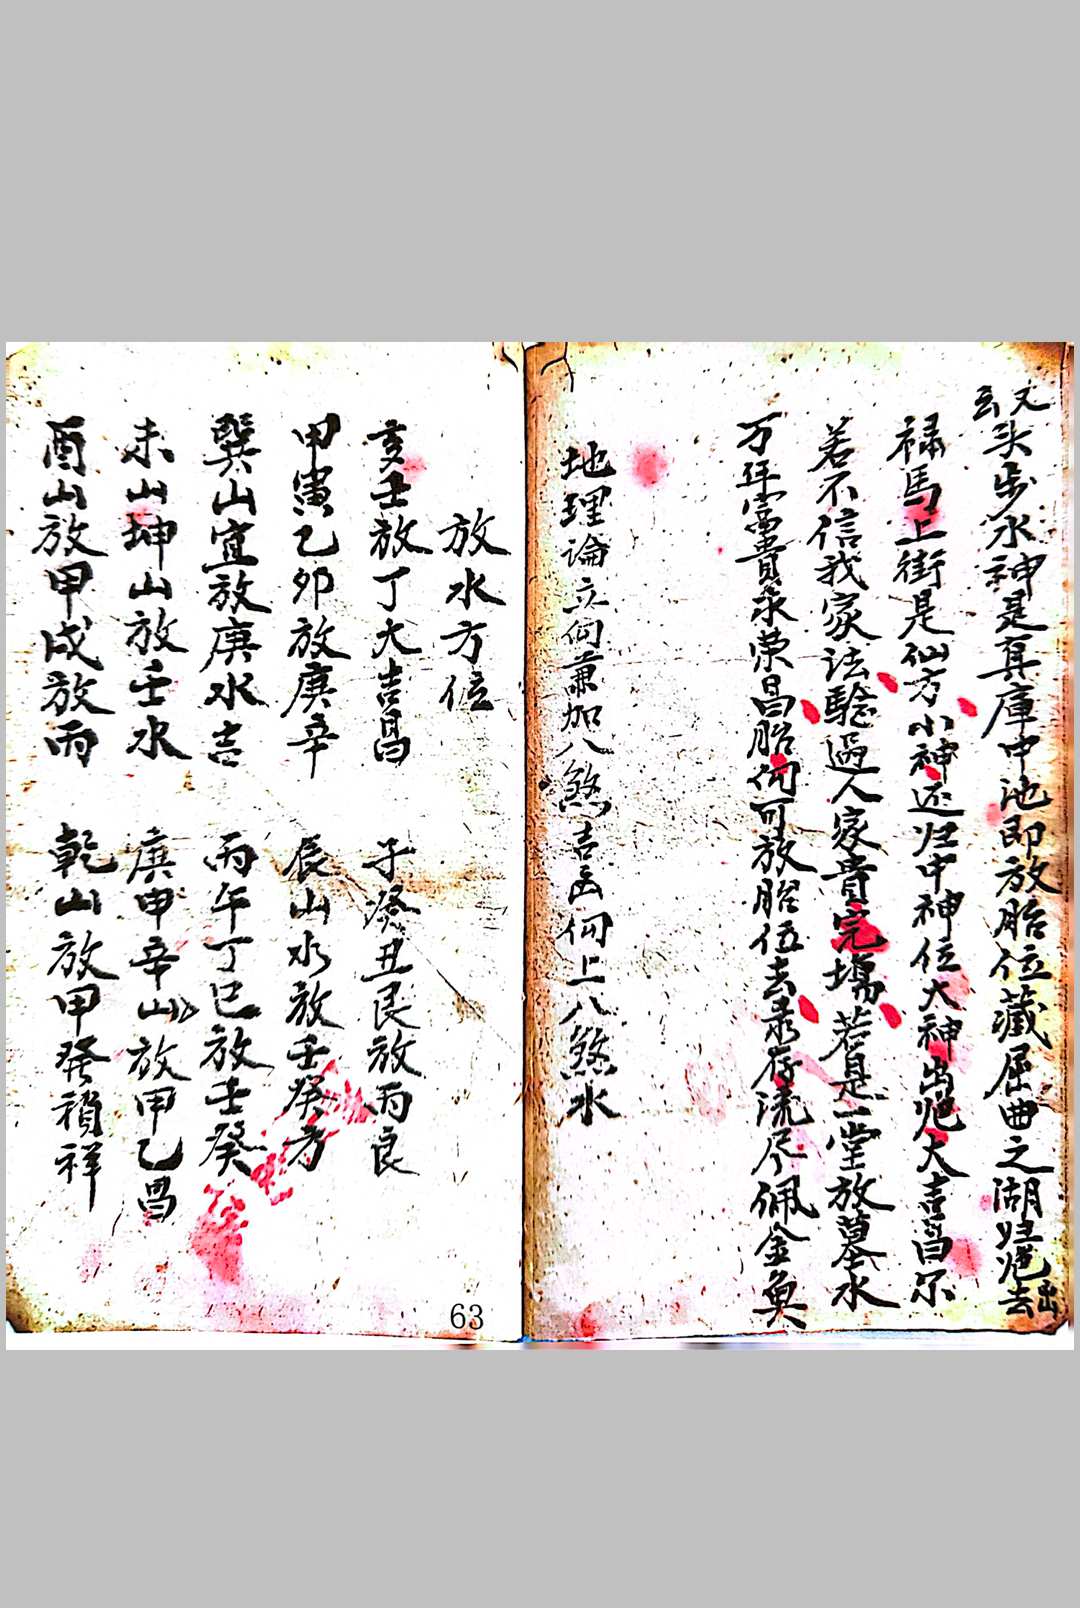 又云头步水神是真庫中池即放胎位藏屈曲之湖归去出
禄馬上街是仙方小神还归中神位大神出大吉昌尔
若不信我家法驗過人家貴完塲若是一堂放墓水
万年富貴永荣昌胎向可放胎伍去录存流尽佩金魚
地理論立向兼加八煞吉凶何上八煞水
放水方位
亥壬放丁大吉昌 子癸丑艮放丙良
甲寅乙卯放庚辛 辰山水放壬癸方
巽山宜放庚水吉 丙午丁巳放壬癸
未山坤山放壬水 庚申辛山放甲乙昌
酉山放甲戍放丙 乾山放甲発禎祥
63